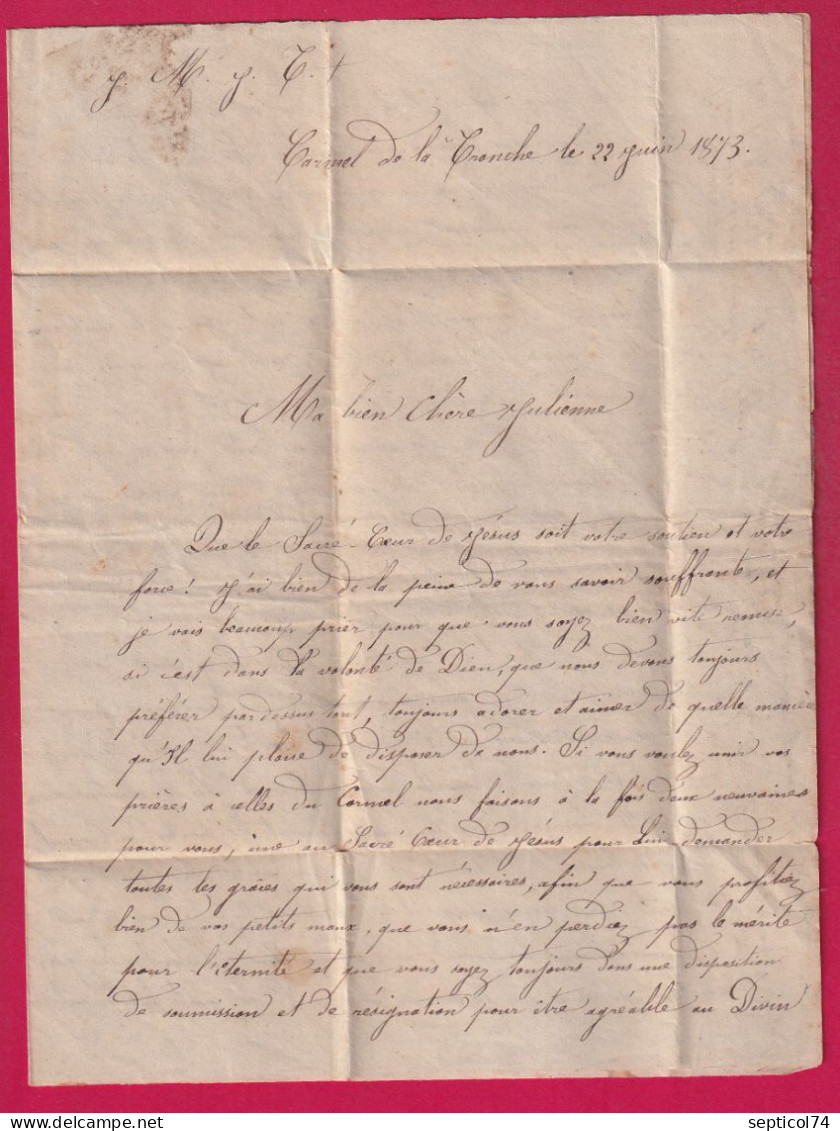 J. M. J. T. +
Carmel de la Tronche le 22 Juin 1873.
Ma bien Chère Julienne
Que le Sacré-Cœur de Jésus soit votre soutien et votre
force ! J'ai bien de la peine de vous savoir souffrante, et
je vais beaucoup prier pour que vous soyez bien vite remise,
si c'est dans la volonté de Dieu, que nous devons toujours
préférer pardessus tout, toujours adorer et aimer de quelle manière
qu'Il lui plaise de disposer de nous. Si vous voulez unir vos
prières à celles du Carmel nous faisons à la fois deux neuvaines
pour vous, une au Sacré Cœur de Jésus pour Lui demander
toutes les grâces qui vous sont nécessaires, afin que vous profitiez
bien de vos petits maux, que vous n'en perdiez pas le mérite
pour l'éternité et que vous soyez toujours dans une disposition
de soumission et de résignation pour être agréable au Divin
septicol74